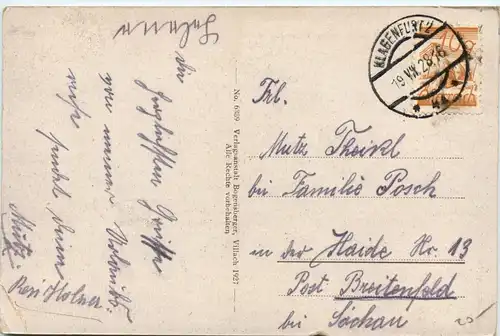 Die
herzlichsten Grüsse
von unserer
sendet Deine
Mutzi
Resi Holzer
No. 6309 Verlagsanstalt Bogensberger, Villach 1927
Alle Rechte vorbehalten
KLAGENFURT 2
19 VII 28 16
* 4a *
Frl.
Mutz Theikl
bei Familie Posch
in der Haide No. 13
Post Breitenfeld
bei Söchau